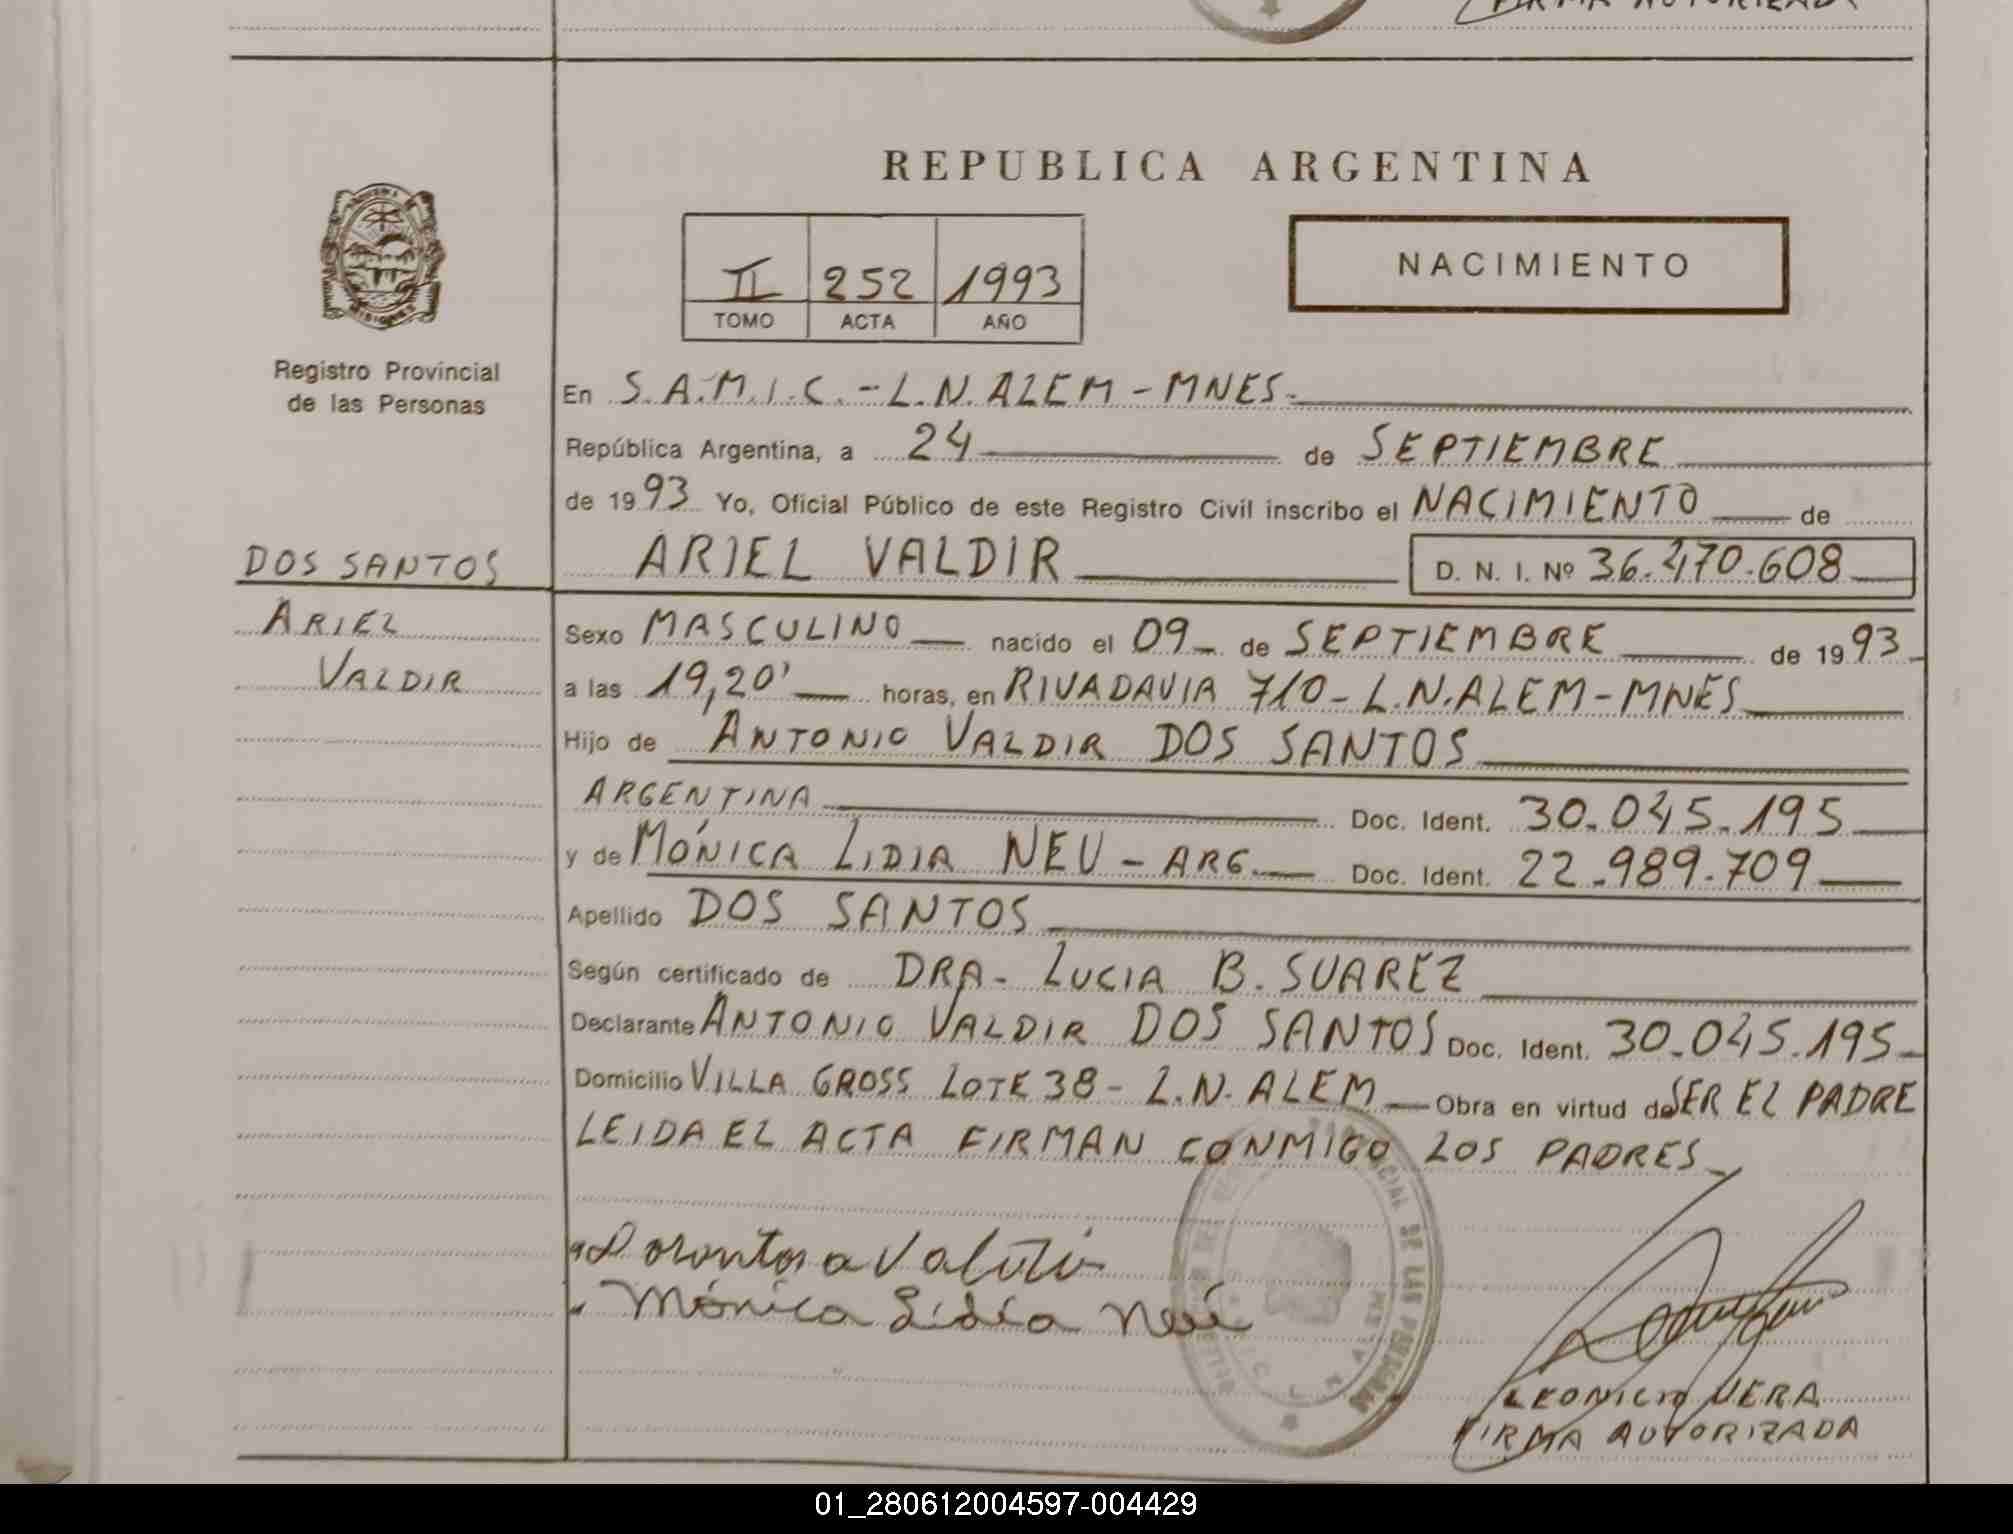 FIRMA AUTORIZADA
REPUBLICA ARGENTINA
II 252 1993
TOMO ACTA AÑO
NACIMIENTO
MISIONES
Registro Provincial
de las Personas
En S.A.M.I.C.-L.N.ALEM-MNES-
República Argentina, a 24 de SEPTIEMBRE
de 1993 Yo, Oficial Público de este Registro Civil inscribo el NACIMIENTO de
DOS SANTOS
ARIEL
VALDIR
ARIEL VALDIR D. N. I. Nº 36.470.608
Sexo MASCULINO nacido el 09 de SEPTIEMBRE de 1993
a las 19,20' horas, en RIVADAVIA 710-L.N.ALEM-MNES
Hijo de ANTONIO VALDIR DOS SANTOS
ARGENTINA Doc. Ident. 30.045.195
y de MÓNICA LIDIA NEU - ARG. Doc. Ident. 22.989.709
Apellido DOS SANTOS
Según certificado de DRA. LUCIA B. SUAREZ
Declarante ANTONIO VALDIR DOS SANTOS Doc. Ident. 30.045.195
Domicilio VILLA GROSS LOTE 38 - L.N. ALEM Obra en virtud de SER EL PADRE
LEIDA EL ACTA FIRMAN CONMIGO LOS PADRES
Mónica Lidia Neu
DE LAS PERSONAS
LEONICIO VERA
FIRMA AUTORIZADA
01_280612004597-004429